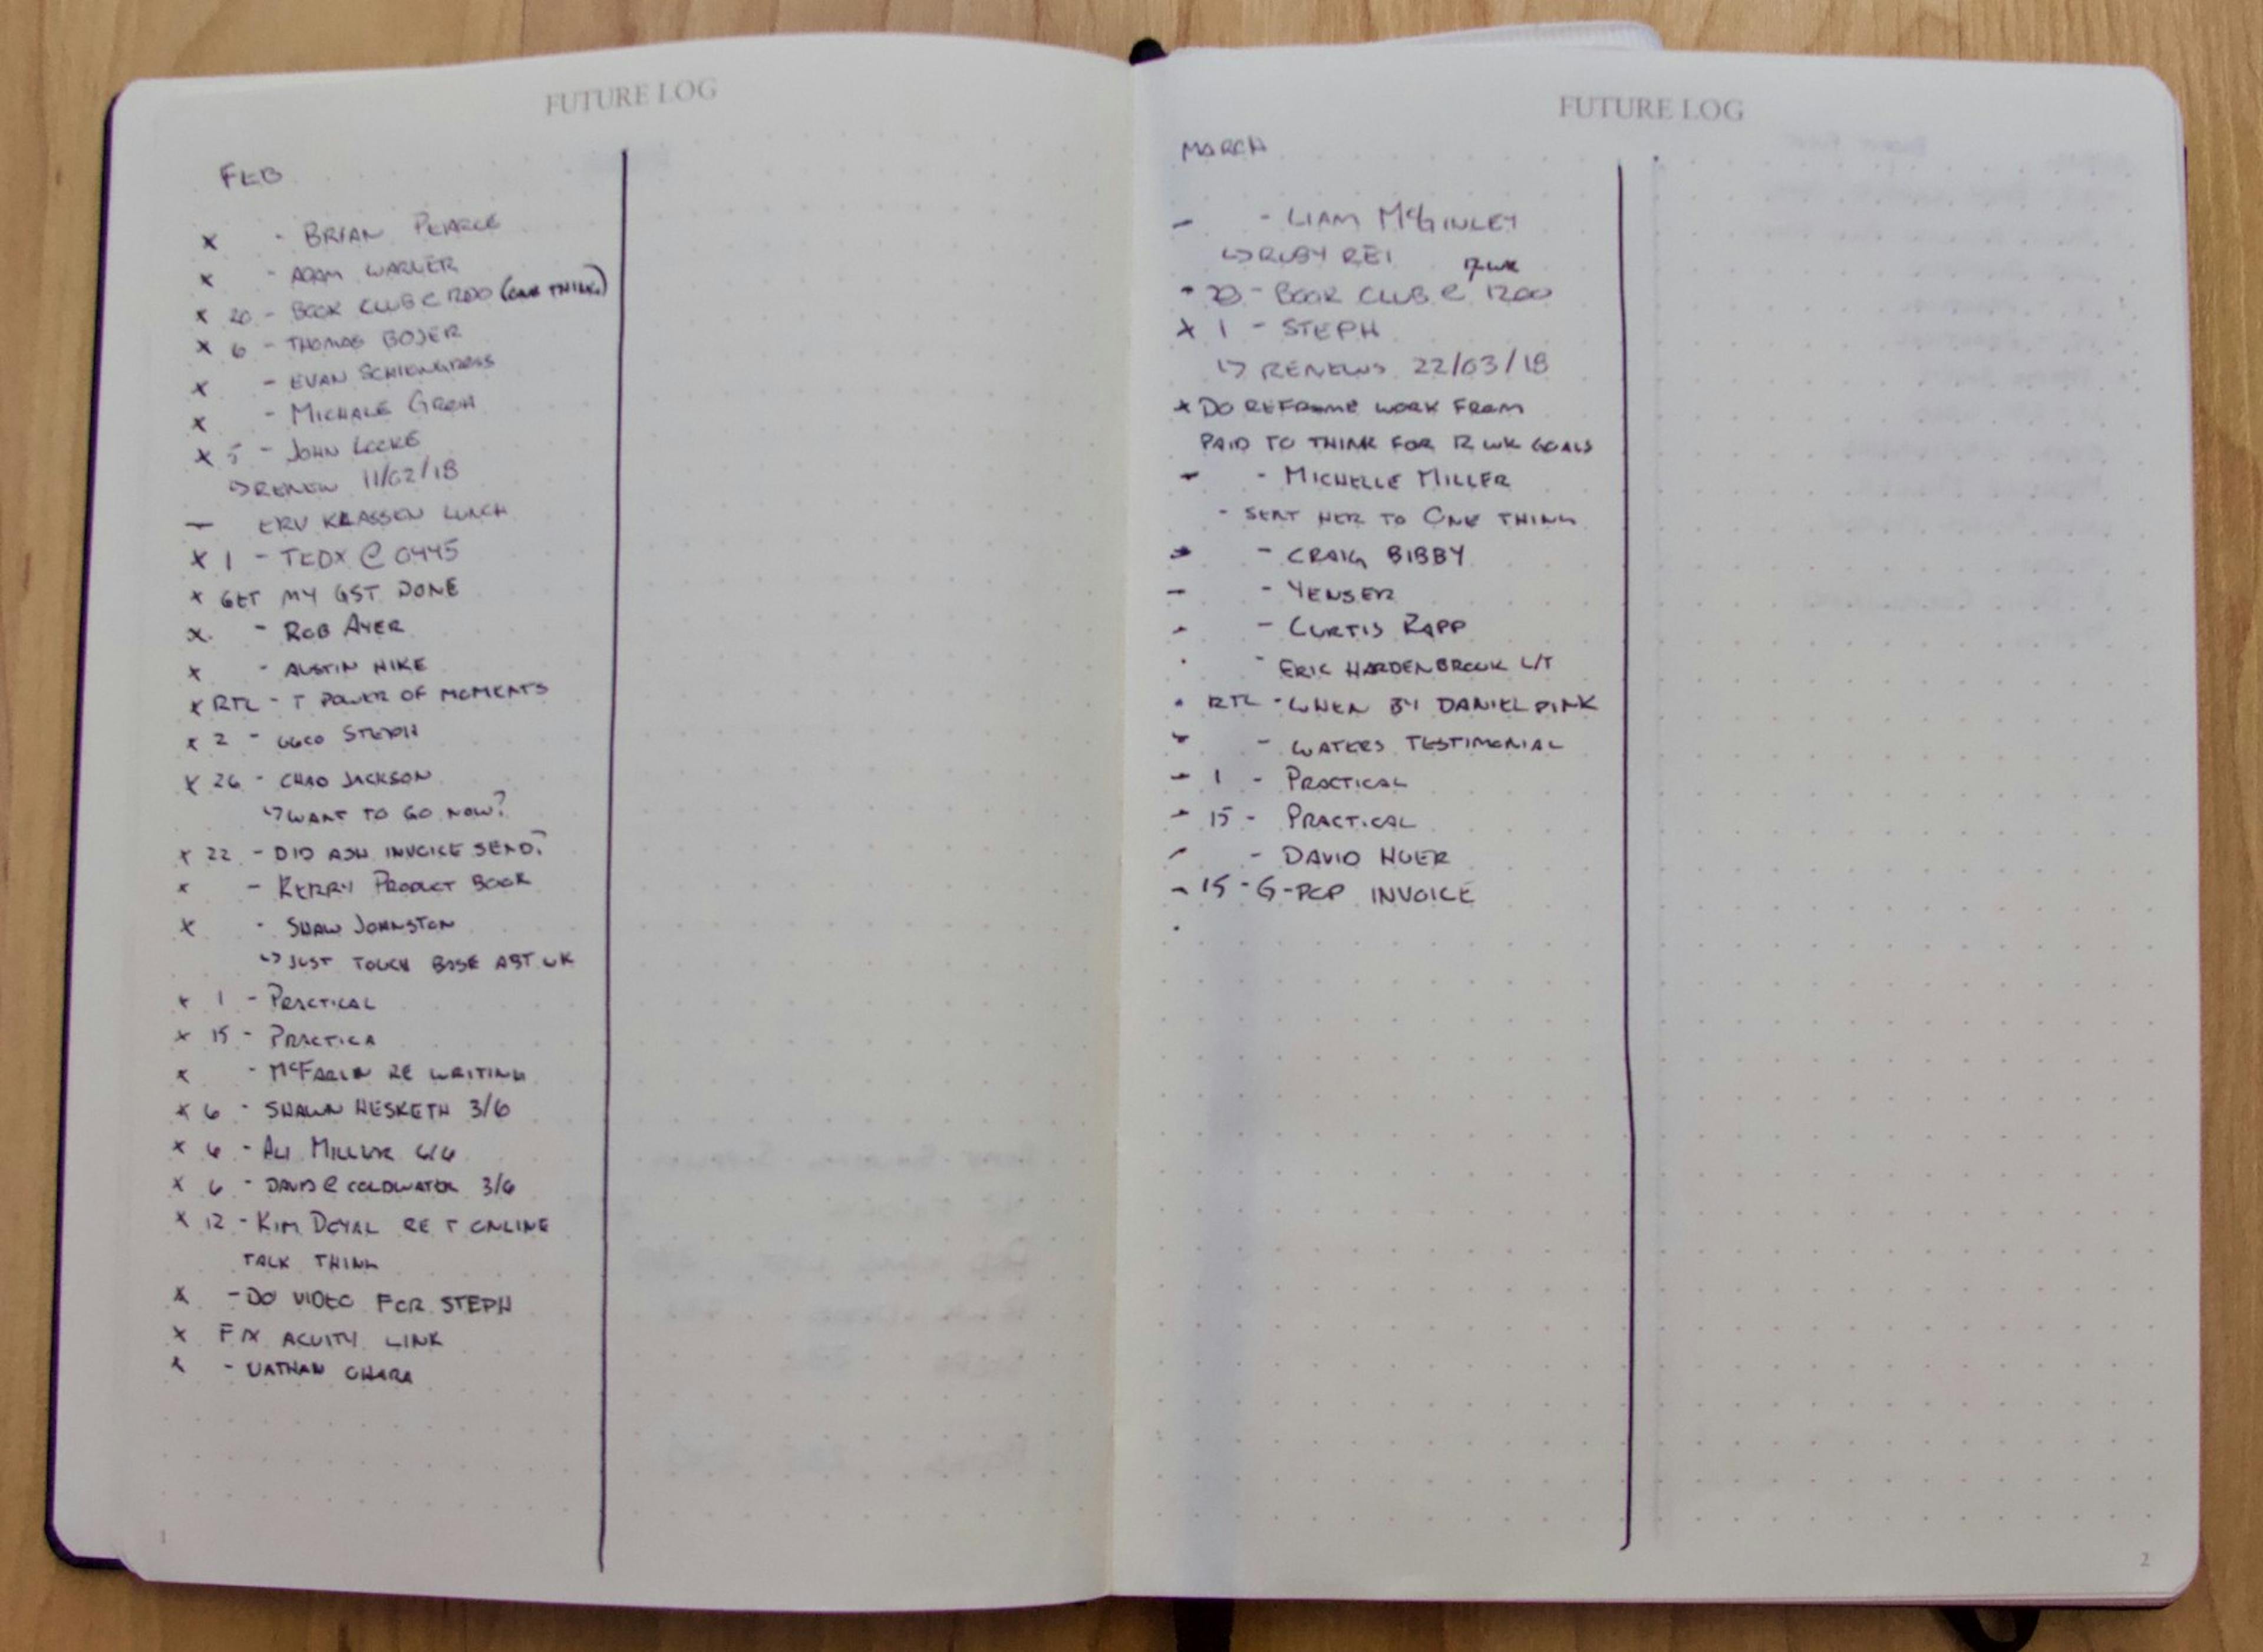 FUTURE LOG
FEB
x - BRIAN PEARCE
x - ADAM WARNER
x 20 - BOOK CLUB @ 1200 (ONE THING)
x 6 - THOMAS BOJER
x - EVAN
x - MICHALE GROH
x 5 - JOHN LOCKE
↳ RENEW 11/02/18
— ERV KLASSEN LUNCH
x 1 - TEDX @ 0445
x GET MY GST DONE
x - ROB AYER
x - AUSTIN HIKE
x RTL - T POWER OF MOMENTS
x 2 - STEPH
x 26 - CHAD JACKSON
↳ WANT TO GO NOW?
x 22 - DID ASH INVOICE SEND?
x - KERRY PRODUCT BOOK
x - SHAW JOHNSTON
↳ JUST TOUCH BASE ABT WK
x 1 - PRACTICAL
x 15 - PRACTICA
x - MCFARLN RE WRITING
x 6 - SHAWN HESKETH 3/6
x 6 - ALI MILLER 6/6
x 6 - DAVID @ COLDWATER 3/6
x 12 - KIM DOYAL RE T ONLINE
TALK THING
x - DO VIDEO FOR STEPH
x FIX ACUITY LINK
x - NATHAN OHARA
1
FUTURE LOG
MARCH
- - LIAM MCGINLEY
↳ RUBY REI
12 WK
• 20 - BOOK CLUB @ 1200
x 1 - STEPH
↳ RENEWS 22/03/18
x DO REFRAME WORK FROM
PAID TO THINK FOR 12 WK GOALS
- - MICHELLE MILLER
- SENT HER TO ONE THING
- - CRAIG BIBBY
- - YENSER
- - CURTIS RAPP
• - ERIC HARDENBROOK L/T
• RTL - WHEN BY DANIEL PINK
- - WATERS TESTIMONIAL
- 1 - PRACTICAL
- 15 - PRACTICAL
- - DAVID HUER
- 15 - G-POP INVOICE
•
2